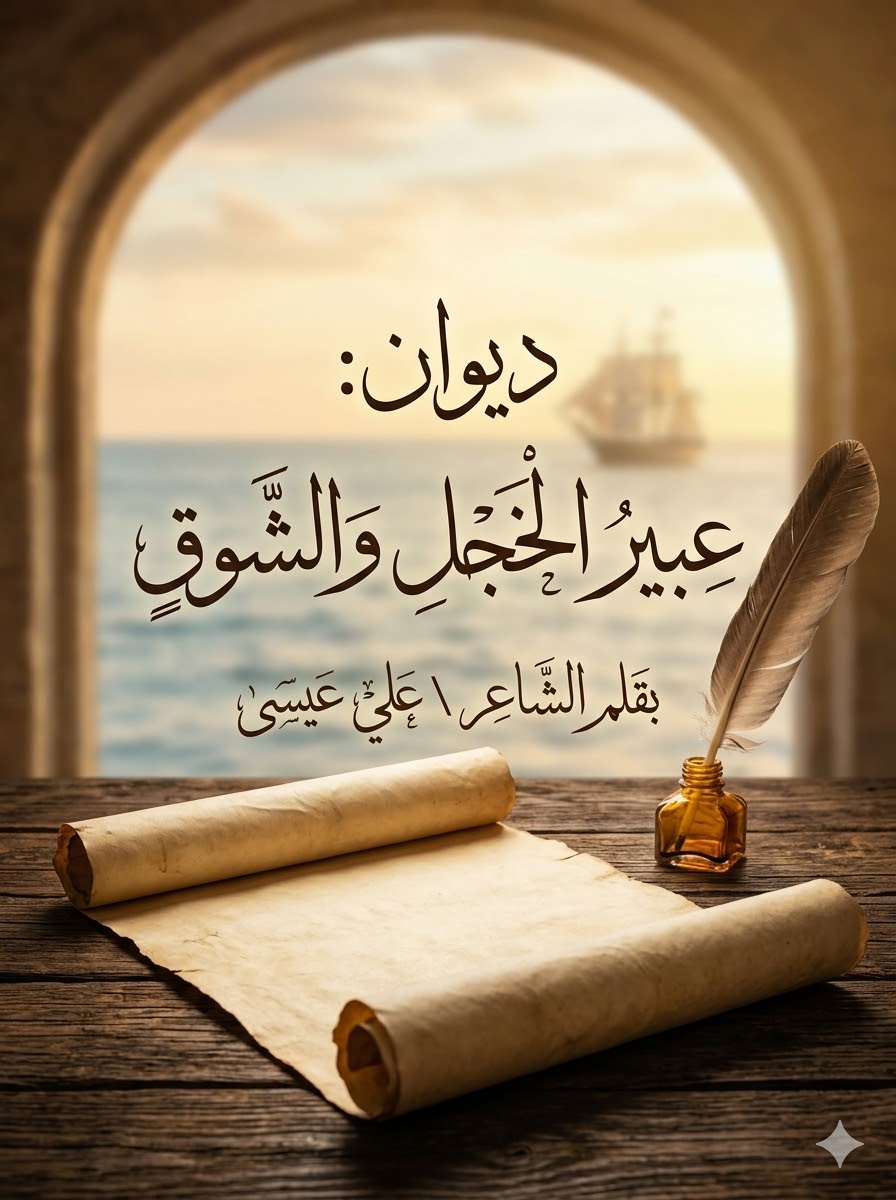 ديوان:
عِبيرُ الْخَجَلِ وَالشَّوقٍ
بقَلم الشَّاعِر \ عَليْ عَيسَى